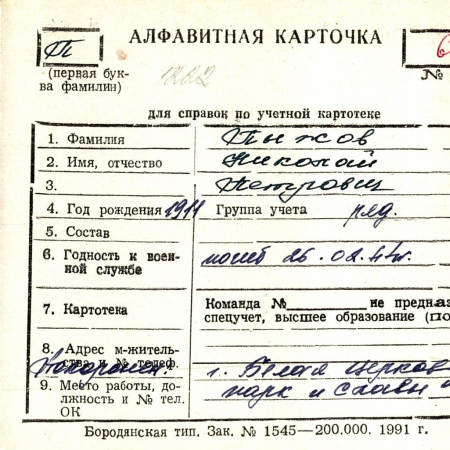 П
АЛФАВИТНАЯ КАРТОЧКА
(первая бук-
ва фамилии)
1222
№
для справок по учетной картотеке
1. Фамилия Пыжов
2. Имя, отчество Николай
3. Петрович
4. Год рождения 1911 Группа учета ряд.
5. Состав
6. Годность к воен-
ной службе погиб 26.02.44г.
7. Картотека Команда № не предна
спецучет, высшее образование (по
8. Адрес м-житель-
ства и № телеф. Похоронен: г. Белая церков
9. Место работы, до- парк и Славы
лжность и № тел.
ОК
Бородянская тип. Зак. № 1545—200.000. 1991 г.